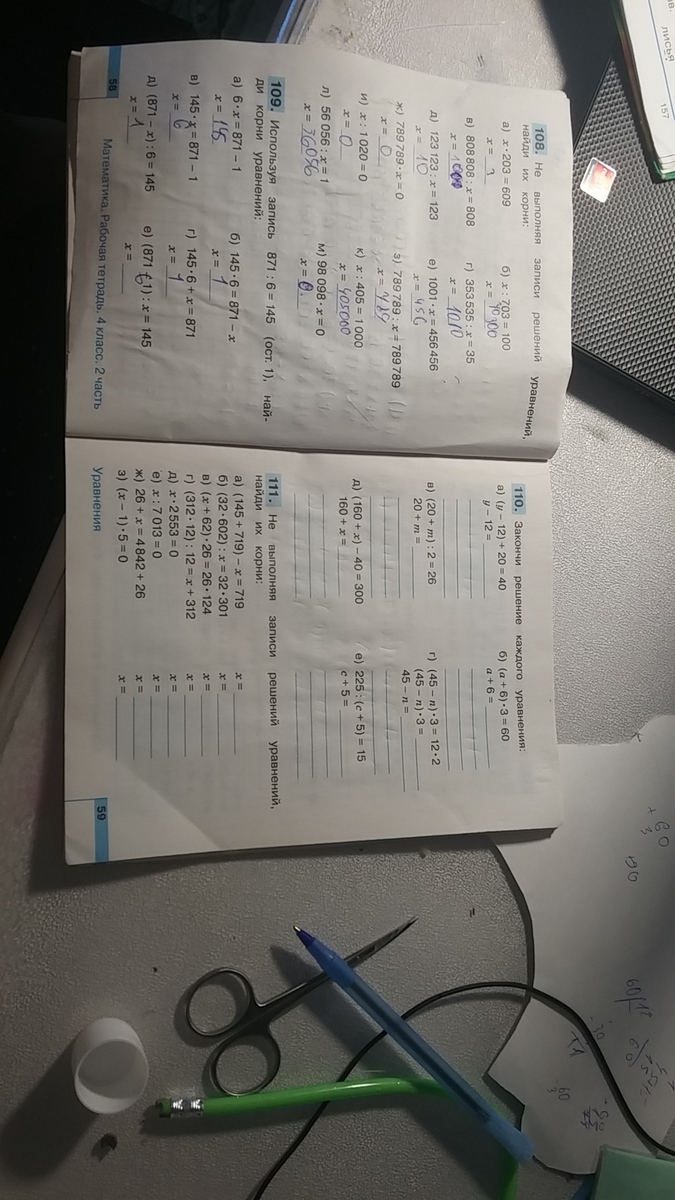 108. Не выполняя записи решений уравнений,
найди их корни:
а) x · 203 = 609
x = 3
б) x : 703 = 100
x =
в) 808 808 : x = 808
x =
г) 353 535 : x = 35
x = 1010
д) 123 123 : x = 123
x = 10
е) 1001 · x = 456 456
x = 456
ж) 789 789 · x = 0
x = 0
з) 789 789 : x = 789 789
x =
и) x : 1 020 = 0
x = 0
к) x : 405 = 1 000
x = 405000
л) 56 056 : x = 1
x = 36056
м) 98 098 · x = 0
x = 0.
109. Используя запись 871 : 6 = 145 (ост. 1), най-
ди корни уравнений:
а) 6 · x = 871 – 1
x = 145
б) 145 · 6 = 871 – x
x = 1
в) 145 · x = 871 – 1
x = 6
г) 145 · 6 + x = 871
x = 1
д) (871 – x) : 6 = 145
x = 1
е) (871 – 1) : x = 145
x =
58 Математика. Рабочая тетрадь. 4 класс. 2 часть
110. Закончи решение каждого уравнения:
а) (y – 12) + 20 = 40
y – 12 =
б) (a + 6) · 3 = 60
a + 6 =
в) (20 + m) : 2 = 26
20 + m =
г) (45 – n) · 3 = 12 · 2
(45 – n) · 3 =
45 – n =
д) (160 + x) – 40 = 300
160 + x =
е) 225 : (c + 5) = 15
c + 5 =
111. Не выполняя записи решений уравнений,
найди их корни:
а) (145 + 719) – x = 719 x =
б) (32 · 602) : x = 32 · 301 x =
в) (x + 62) · 26 = 26 · 124 x =
г) (312 · 12) : 12 = x + 312 x =
д) x · 2 553 = 0 x =
е) x : 7 013 = 0 x =
ж) 26 + x = 4 842 + 26 x =
з) (x – 1) · 5 = 0 x =
Уравнения 59
157
лисья